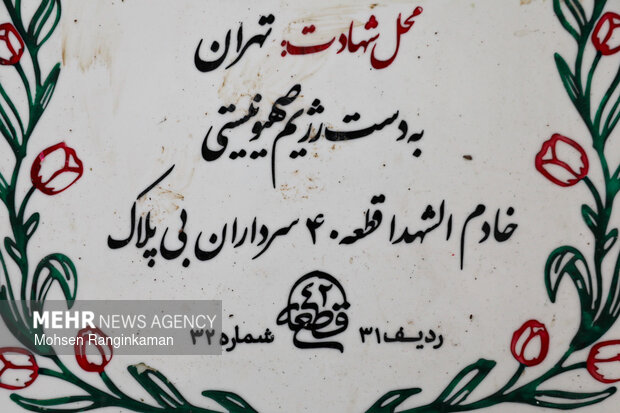 محل شهادت: تهران
به دست رژیم صهیونیستی
خادم الشهدا قطعه ۴۰ سرداران بی پلاک
قطعه ۴۲
ردیف ۳۱ شماره ۳۲
MEHR NEWS AGENCY
Mohsen Ranginkaman